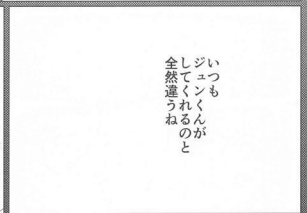 いつも
ジュンくんが
してくれるのと
全然違うね